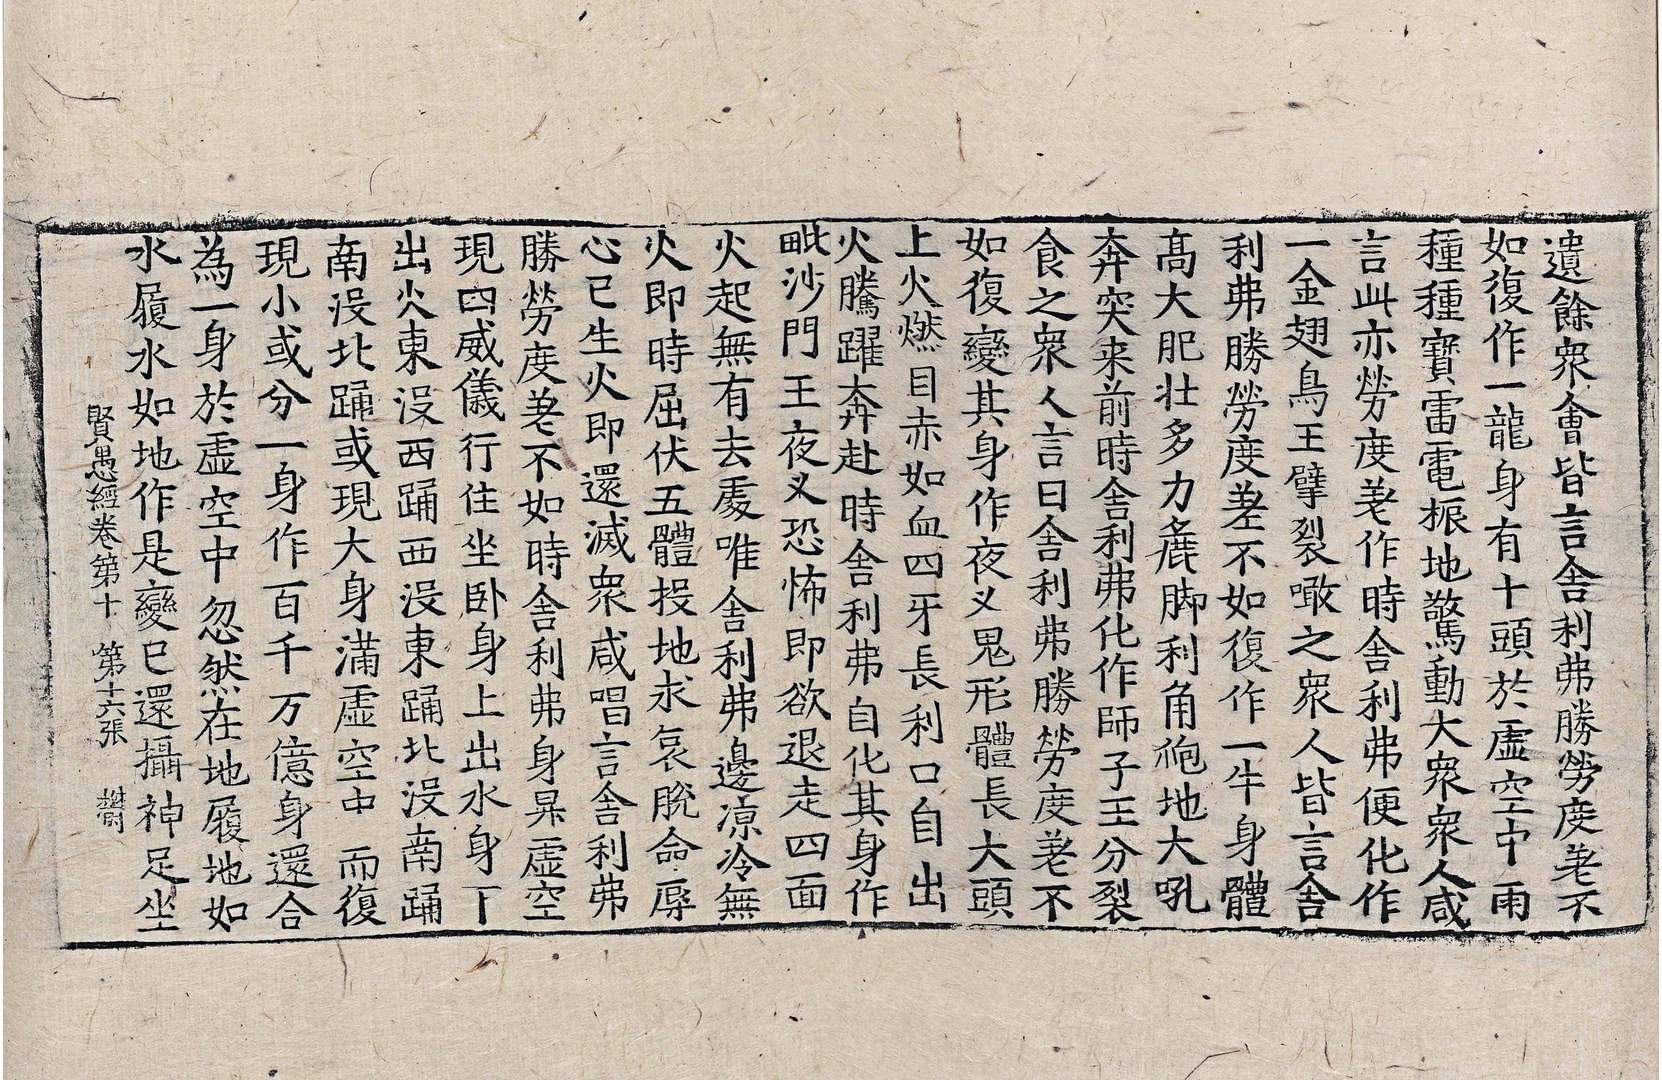 遺餘衆會皆言舍利弗勝勞度差不
如復作一龍身有十頭於虛空中雨
種種寶雷電振地驚動大衆衆人咸
言此亦勞度差作時舍利弗便化作
一金翅鳥王擘裂噉之衆人皆言舍
利弗勝勞度差不如復作一牛身體
髙大肥壮多力麁脚利角跑地大吼
奔突来前時舍利弗化作師子王分裂
食之衆人言曰舍利弗勝勞度差不
如復變其身作夜叉鬼形體長大頭
上火燃目赤如血四牙長利口自出
火騰躍奔赴時舍利弗自化其身作
毗沙門王夜叉恐怖即欲退走四面
火起無有去處唯舍利弗邊凉冷無
火即時屈伏五體投地求哀脫命辱
心已生火即還滅衆咸唱言舍利弗
勝勞度差不如時舍利弗身昇虛空
現四威儀行住坐卧身上出水身下
出火東没西踊西没東踊北没南踊
南没北踊或現大身滿虛空中而復
現小或分一身作百千万億身還合
為一身於虛空中忽然在地履地如
水履水如地作是變已還攝神足坐
賢愚經卷第十 第十六張